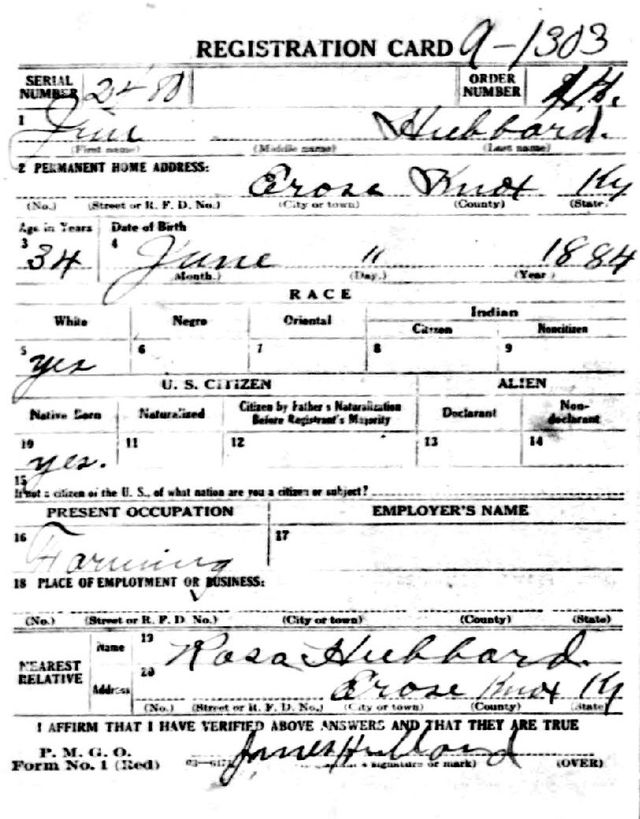 REGISTRATION CARD A-1303
SERIAL NUMBER ORDER NUMBER
1 Jim Hubbard.
(First name) (Middle name) (Last name)
2 PERMANENT HOME ADDRESS:
Erose Knox Ky
(No.) (Street or R. F. D. No.) (City or town) (County) (State)
Age in Years Date of Birth
3 34 4 June 11 1884
(Month.) (Day.) (Year)
RACE
White Negro Oriental Indian
Citizen Noncitizen
5 yes 6 7 8 9
U. S. CITIZEN ALIEN
Native Born Naturalized Citizen by Father's Naturalization Before Registrant's Majority Declarant Non-declarant
10 yes. 11 12 13 14
15 If not a citizen of the U. S., of what nation are you a citizen or subject?
PRESENT OCCUPATION EMPLOYER'S NAME
16 Farming 17
18 PLACE OF EMPLOYMENT OR BUSINESS:
(No.) (Street or R. F. D. No.) (City or town) (County) (State)
NEAREST RELATIVE Name 19 Rosa Hubbard.
Address 20 Erose Knox Ky
(No.) (Street or R. F. D. No.) (City or town) (County) (State)
I AFFIRM THAT I HAVE VERIFIED ABOVE ANSWERS AND THAT THEY ARE TRUE
P. M. G. O.
Form No. 1 (Red) James Hubbard
signature or mark) (OVER)